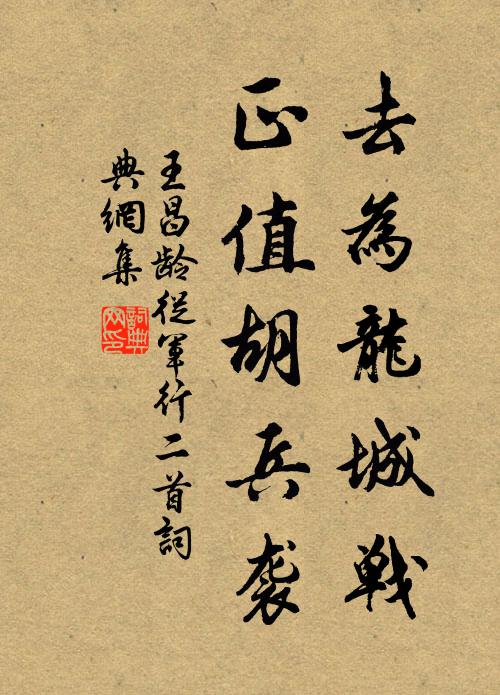 去為龍城戰
正值胡兵袭
王昌龄從軍行二首詞
典網集
詞典网印